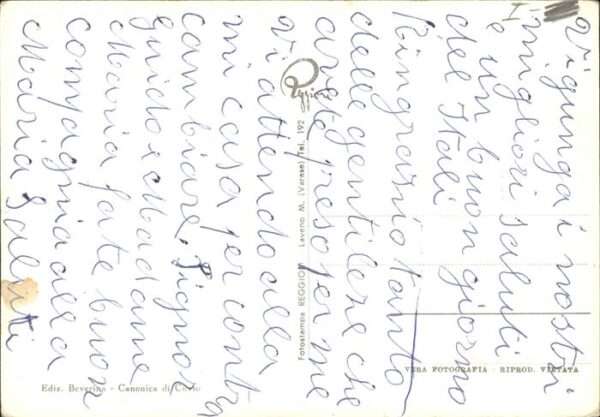 Vi giunga i nostri
migliori saluti
e un buon giorno
del Itali
Ringrazio tanto
delle gentileze che
avete preso per me
vi attendo alla
mi casa per contra
cambiare, Signor
Guido e Madame
Maria fate buon
compagnia alla
Maria Saluti
Reggiori
Fotostampa REGGIORI Laveno M. (Varese) Tel. 192
VERA FOTOGRAFIA - RIPROD. VIETATA
Ediz. Beverina - Canonica di Cuvio